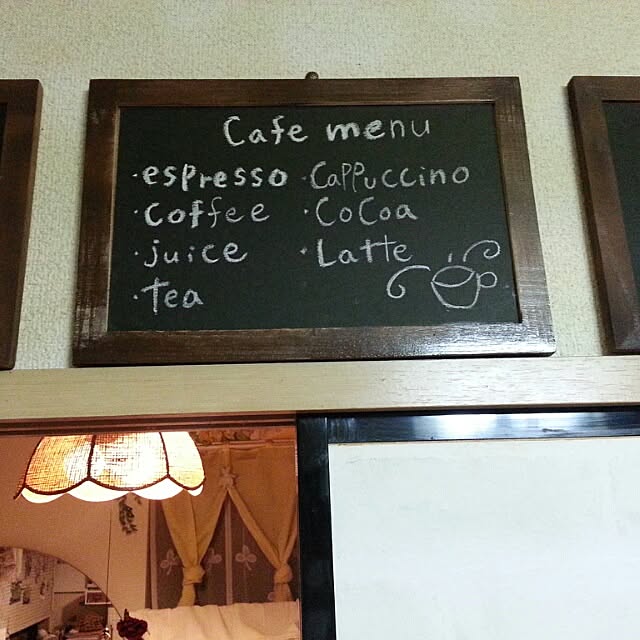 Cafe menu
·espresso
·coffee
·juice
·tea
·Cappuccino
·CoCoa
·Latte